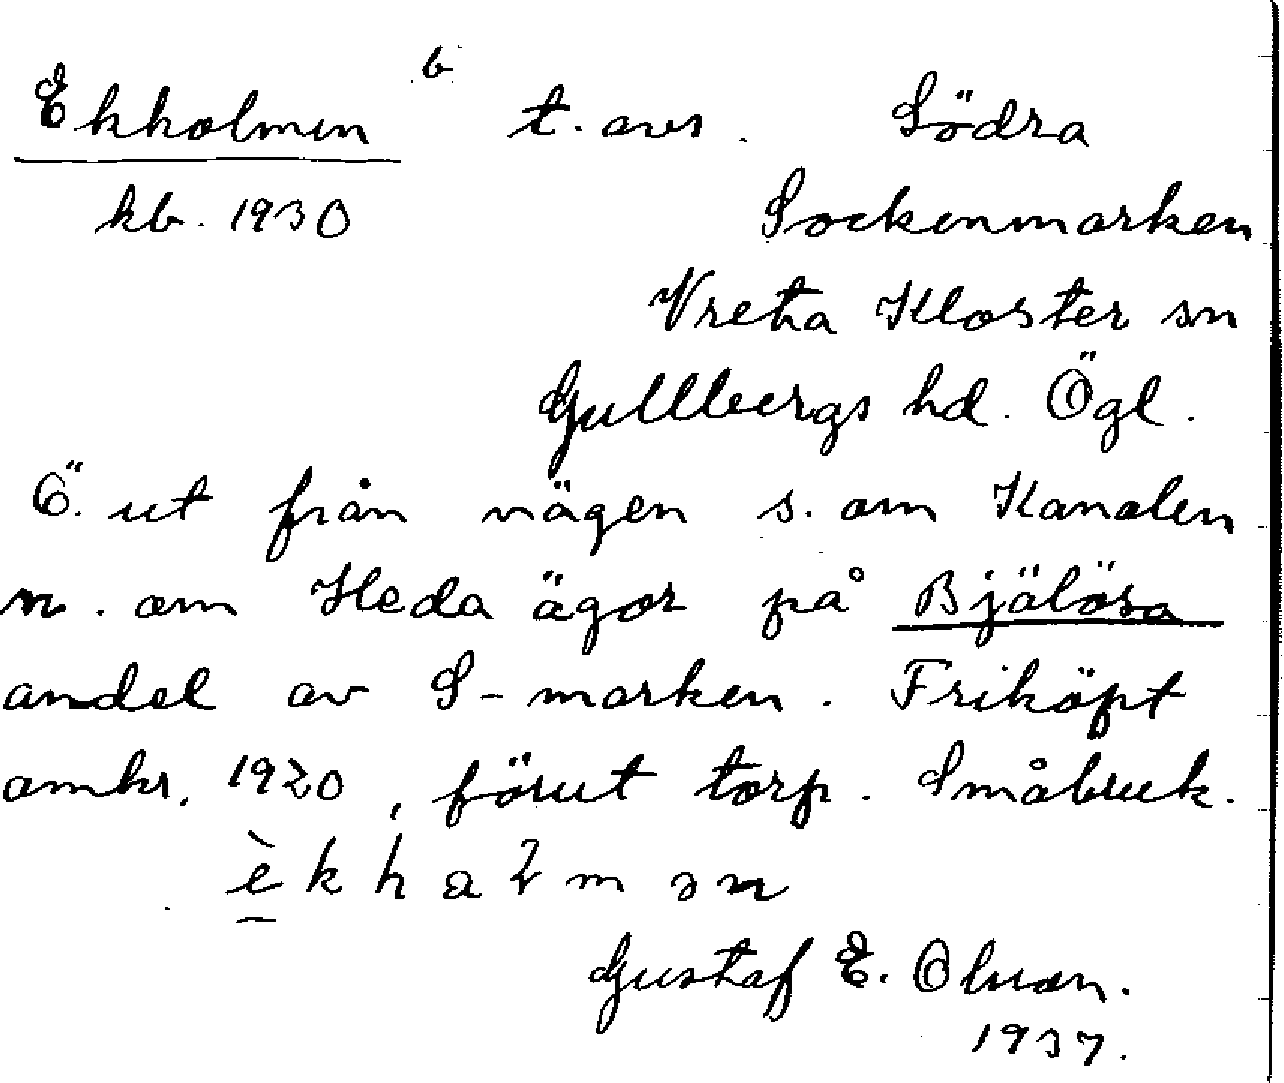 Ekholmen b t. avs. Södra
kb. 1930 Sockenmarken
Vreta Kloster sn
Gullbergs hd. Ögl.
Ö. ut från vägen s. om Kanalen
n. om Heda ägor på Bjälösa
andel av S-marken. Friköpt
omkr. 1920, förut torp. Småbruk.
Gustaf E. Olsson.
1937.